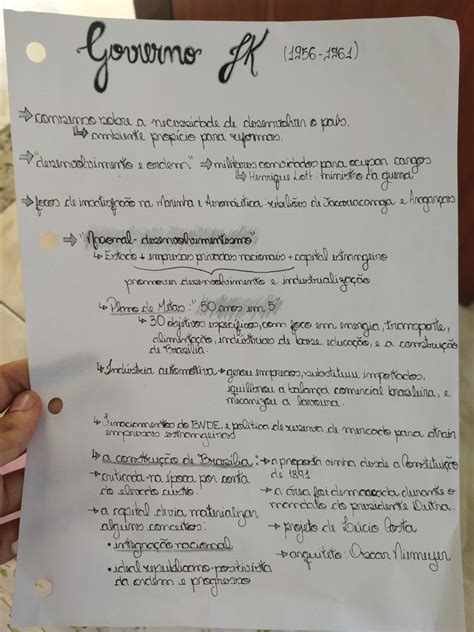 Governo JK (1956-1961)
⇒ consenso sobre a necessidade de desenvolver o país.
↳ ambiente propício para reformas.
⇒ "desenvolvimento e ordem" ⇒ militares convidados para ocupar cargos
↳ Henrique Lott: ministro da guerra
⇒ focos de insatisfação na Marinha e Aeronáutica: rebeliões de Jacareacanga e Aragarças
⇒ "Nacional-desenvolvimentismo"
↳ Estado + empresas privadas nacionais + capital estrangeiro
promover desenvolvimento e industrialização
↳ Plano de Metas: "50 anos em 5"
↳ 30 objetivos específicos, com foco em energia, transporte,
alimentação, indústrias de base, educação, e a construção
de Brasília.
↳ Indústria automotiva → gerou empregos, substituiu importados,
equilibrou a balança comercial brasileira, e
mecanizou a lavoura.
↳ Financiamento do BNDE, e política de reserva de mercado para atrair
empresas estrangeiras
↳ a construção de Brasília: → a proposta vinha desde a Constituição
de 1891
→ criticada na época por conta
do elevado custo.
→ a área foi demarcada durante o
mandato do presidente Dutra.
→ a capital devia materializar
alguns conceitos:
→ projeto de Lúcio Costa
• integração nacional
→ arquiteto: Oscar Niemeyer
• ideal republicano-positivista
da ordem e progresso